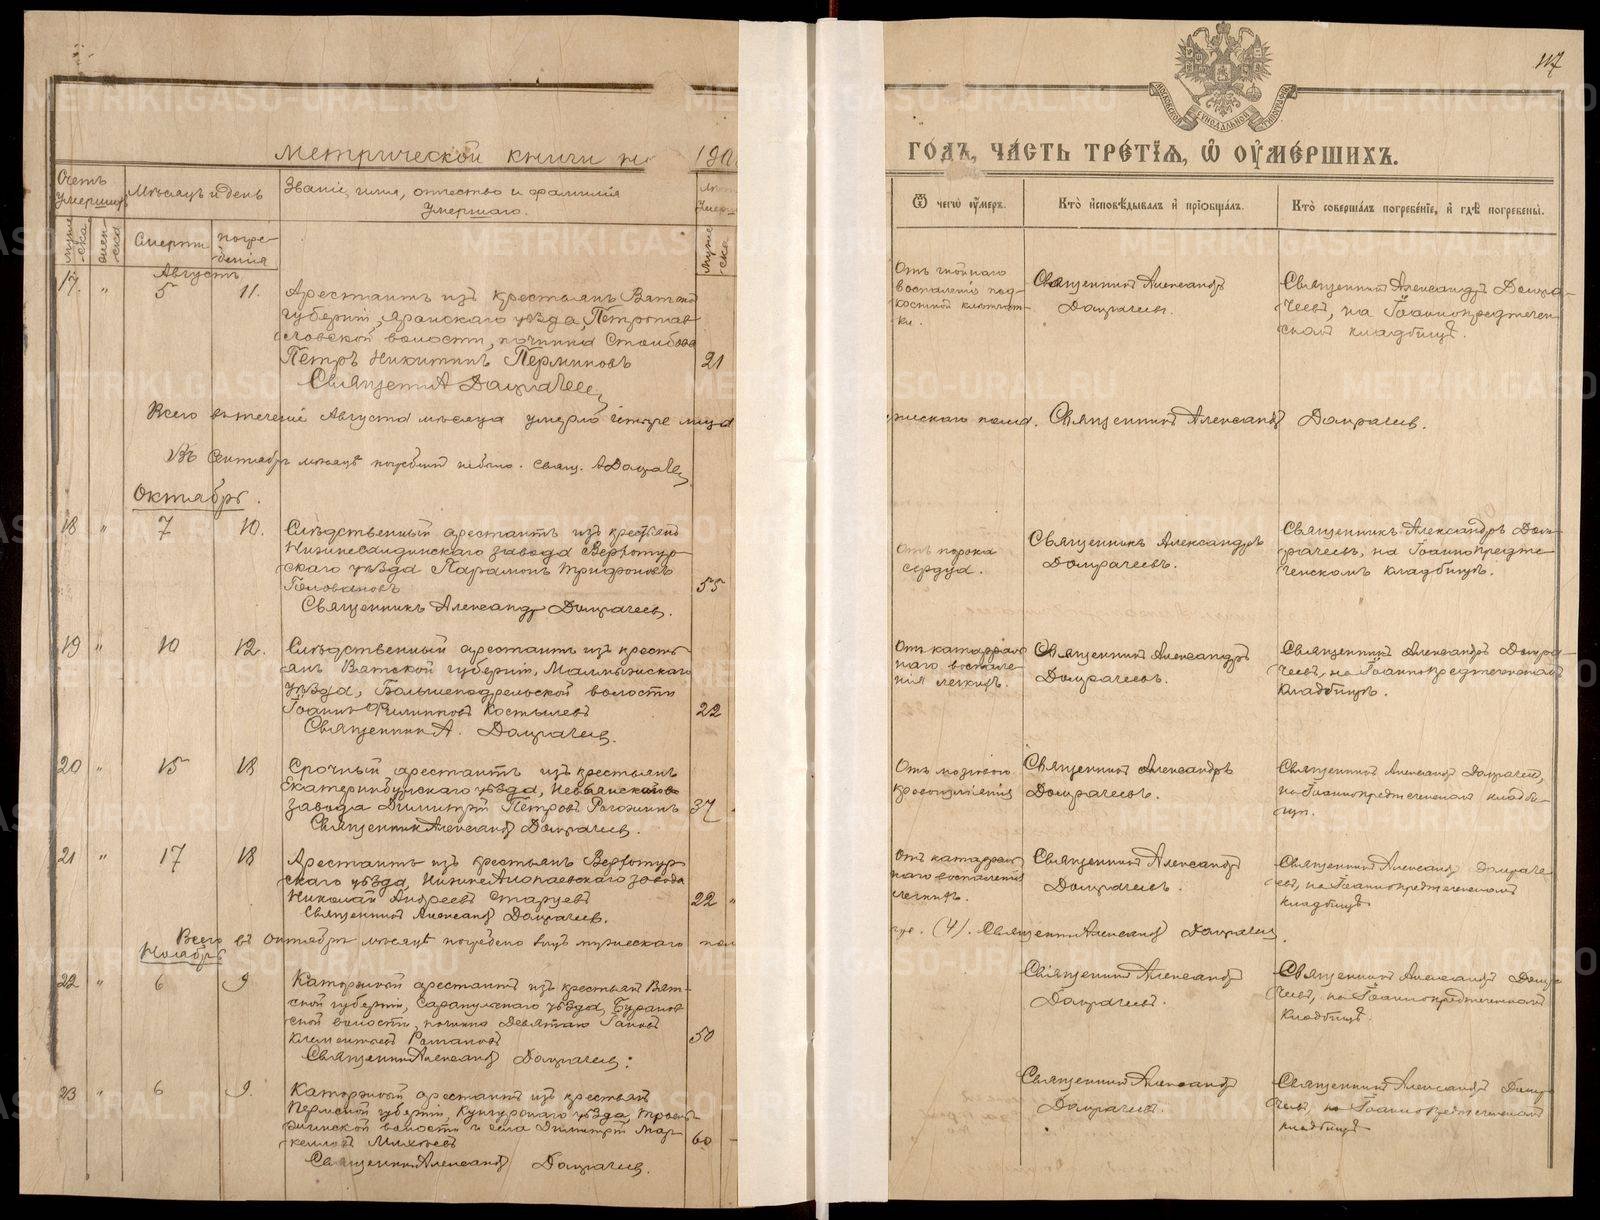 117
Метрической книги на 190
ГОДЪ, ЧАСТЬ ТРЕТІЯ, Ѽ ОУМЕРШИХЪ.
МОСКОВСКОЙ СѴНОДАЛЬНОЙ ТИПОГРАФІИ
Счетъ умершихъ
Мѣсяцъ и день
Званіе, имя, отчество и фамилія
умершаго.
Мужеска
женска
Смерти
погребенія
Мужеска
Ѿ чегѡ оумеръ.
Кто исповѣдывалъ и пріобщалъ.
Кто совершалъ погребеніе, и гдѣ погребены.
Августъ
17. " 5 11.
Арестантъ изъ крестьянъ Вятской
губерніи, Яранскаго уѣзда, Петропав-
ловской волости, починка
Петръ Никитинъ Перминовъ 21
Священ. А Домрачевъ
Отъ гнойнаго
воспаленія под-
кожной клѣтчат-
ки.
Священникъ Александръ
Домрачевъ.
Священникъ Александръ Домра-
чевъ, на Іоаннопредтечен-
скомъ кладбищѣ.
Всего въ теченіе Августа мѣсяца умерло четыре лица
мужскаго пола. Священникъ Александръ Домрачевъ.
Въ Сентябрѣ мѣсяцѣ погребеній не было. Свящ. А Домрачевъ
Октябрь.
18 " 7 10.
Слѣдственный арестантъ изъ крестьянъ
Нижнесалдинскаго завода Верхотур-
скаго уѣзда Парамонъ Трифоновъ
Головановъ 55
Священникъ Александръ Домрачевъ.
Отъ порока
сердца.
Священникъ Александръ
Домрачевъ.
Священникъ Александръ Дом-
рачевъ, на Іоаннопредте-
ченскомъ кладбищѣ.
19 " 10 12.
Слѣдственный арестантъ изъ кресть-
янъ Вятской губерніи, Малмыжскаго
уѣзда, волости
Іоаннъ Филипповъ Костылевъ 22
Священник А. Домрачевъ.
Отъ катарраль
наго воспале-
нія легкихъ.
Священникъ Александръ
Домрачевъ.
Священникъ Александръ Домра-
чевъ, на Іоаннопредтеченскомъ
кладбищѣ.
20 " 15 18
Срочный арестантъ изъ крестьянъ
Екатеринбургскаго уѣзда, Невьянскаго
завода Димитрій Петровъ Рогожинъ 37
Священник Александръ Домрачевъ.
Отъ мозгового
кровоизліянія
Священникъ Александръ
Домрачевъ.
Священникъ Александръ Домрачевъ,
на Іоаннопредтеченскомъ кладби-
щѣ.
21 " 17 18
Арестантъ изъ крестьянъ Верхотур-
скаго уѣзда, Нижне Алапаевскаго завода
Николай Андреевъ Старцевъ 22 "
Священникъ Александръ Домрачевъ.
Отъ катарраль
наго воспаленія
легкихъ.
Священникъ Александръ
Домрачевъ.
Священникъ Александръ Домраче-
въ, на Іоаннопредтеченскомъ
кладбищѣ
Всего въ Октябрѣ мѣсяцѣ погребено лицъ мужескаго пола
(4). Священник Александръ Домрачевъ.
Ноябрь
22 " 6 9
Каторжный арестантъ изъ крестьянъ Вят-
ской губерніи, Сарапульскаго уѣзда, Бурановской
волости, починка
Климентьевъ Романовъ 50
Священник Александръ Домрачевъ.
Священникъ Александръ
Домрачевъ.
Священникъ Александръ Домра
чевъ, на Іоаннопредтеченскомъ
кладбищѣ.
23 " 6 9.
Каторжный арестантъ изъ крестьянъ
Пермской губерніи, Кунгурскаго уѣзда,
волости и села Димитрій Мар-
келловъ Михѣевъ 60
Священник Александръ Домрачевъ.
Священникъ Александръ
Домрачевъ.
Священникъ Александръ Домра
чевъ, на Іоаннопредтеченскомъ
кладбищѣ
METRIKI.GASO-URAL.RU